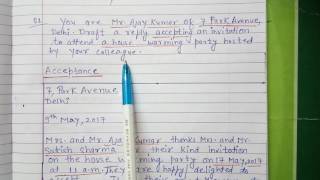 Q1. You are Mr. Ajay Kumar of 7, Park Avenue,
Delhi. Draft a reply accepting an invitation
to attend a house - warming party hosted
by your colleague.
Acceptance
7, Park Avenue
Delhi
9th May, 2017
Mrs. and Mr. Ajay Kumar thanks Mrs. and Mr.
Satish Sharma their kind invitation
on the house warming party on 17 May, 2017
at 11 a.m. They are happy, delighted to